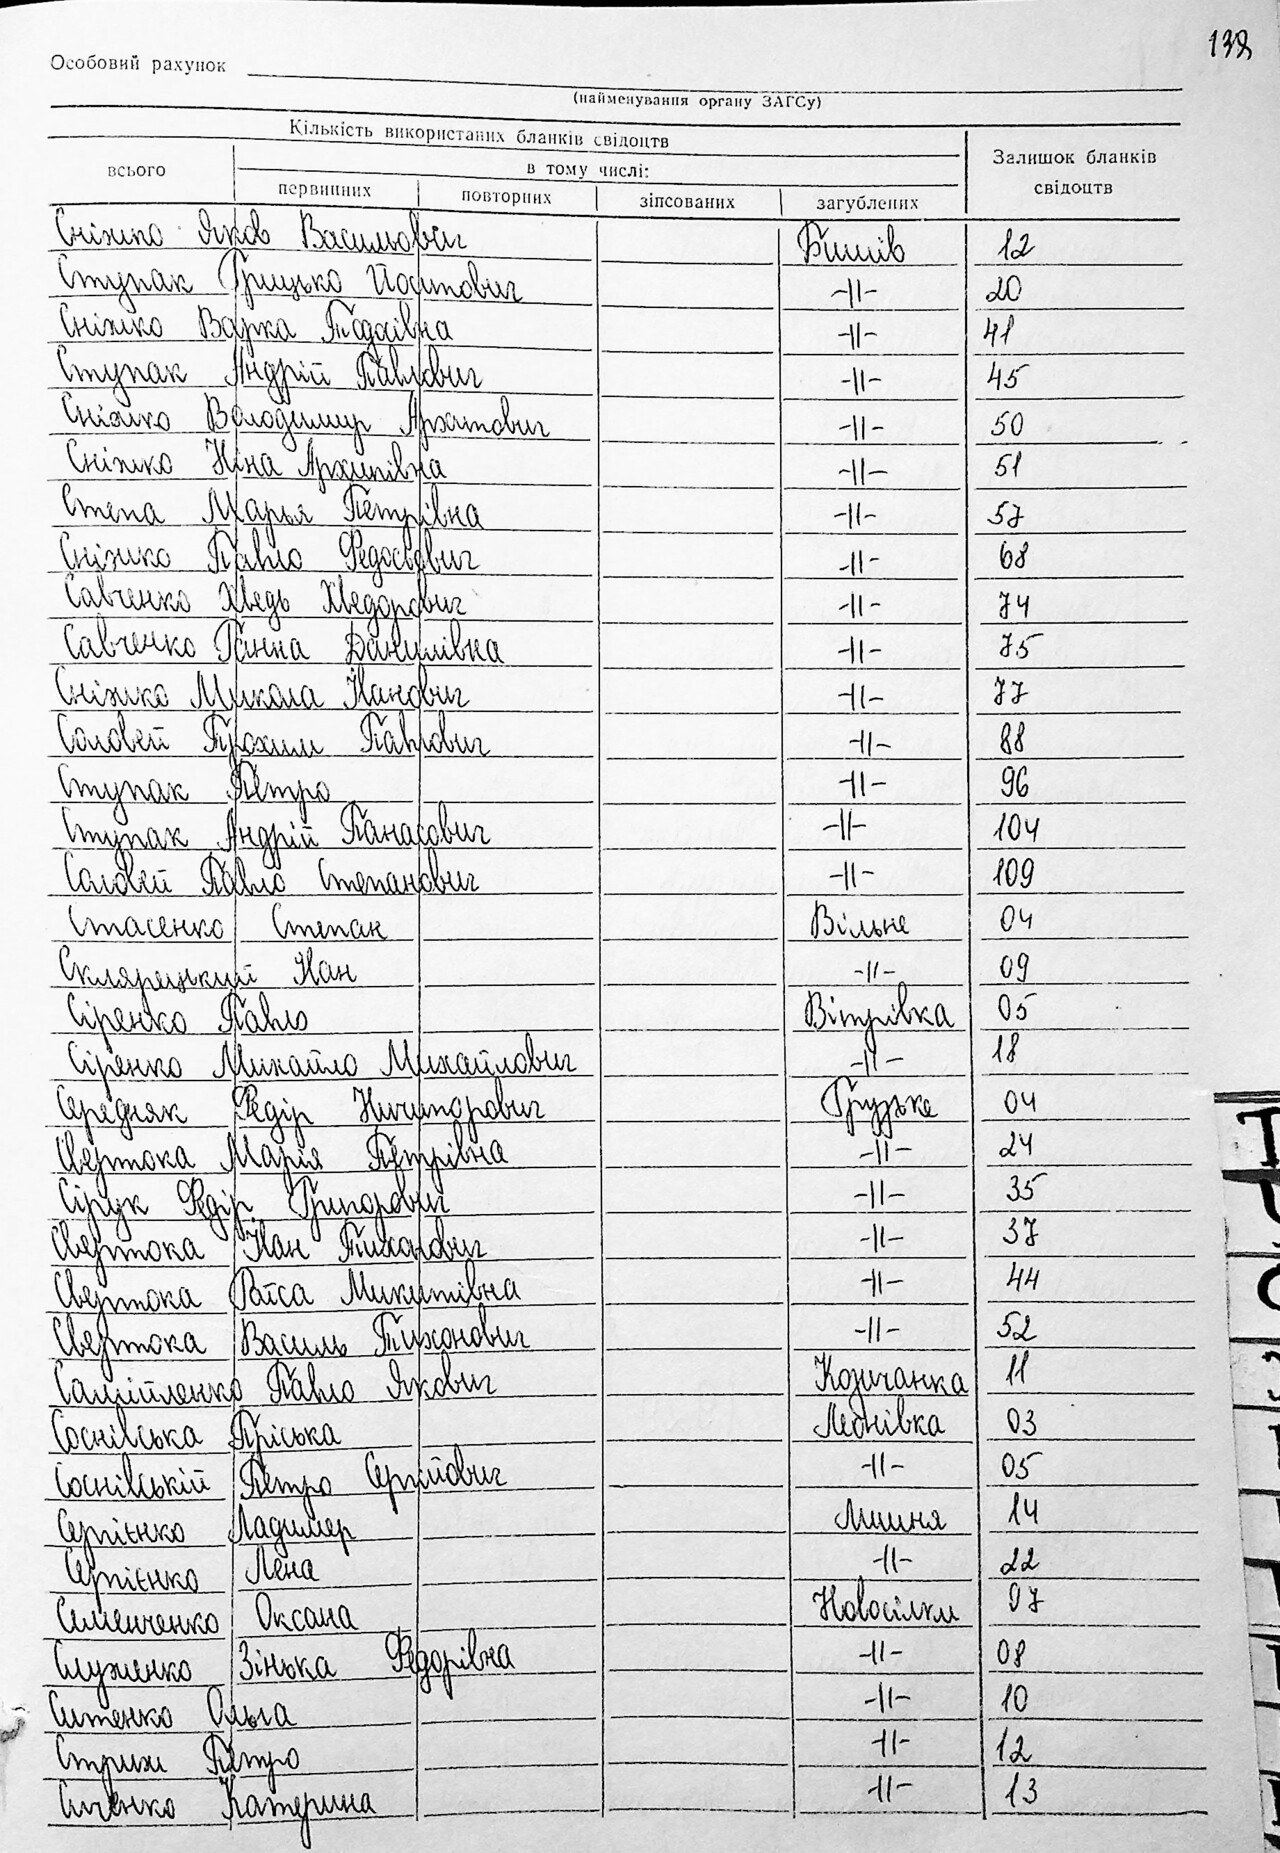 138
Особовий рахунок
(найменування органу ЗАГСу)
Кількість використаних бланків свідоцтв
Залишок бланків свідоцтв
всього
в тому числі:
первинних повторних зіпсованих загублених
Сніжко Яков Васильович Бишів 12
Ступак Грицько Йосипович -||- 20
Сніжко Варка Тодосівна -||- 41
Ступак Андрій Павлович -||- 45
Сніжко Володимир Архипович -||- 50
Сніжко Ніна Архипівна -||- 51
Степа Марья Петрівна -||- 57
Сніжко Павло Федосвович -||- 68
Савченко Хведь Хведорович -||- 74
Савченко Ганна Данилівна -||- 75
Сніжко Микола Іванович -||- 77
Соловей Трохим Павлович -||- 88
Ступак Петро -||- 96
Ступак Андрій Панасович -||- 104
Соловей Павло Степанович -||- 109
Стасенко Степан Вільне 04
Скляренький Іван -||- 09
Сіренко Павло Вітрівка 05
Сіренко Михайло Михайлович -||- 18
Середняк Федір Ничипорович Грузьке 04
Свертока Марія Петрівна -||- 24
Сірук Федір Григорович -||- 35
Свертока Іван Тихонович -||- 37
Свертока Раїса Микитівна -||- 44
Свертока Василь Тихонович -||- 52
Самійленко Павло Якович Козичанка 11
Соснівська Пріська Леонівка 03
Соснівський Петро Сергійович -||- 05
Сергієнко Ладимер Лишня 14
Сергієнко Лена -||- 22
Семенченко Оксана Новосілки 07
Служенко Зінька Федорівна -||- 08
Ситенко Ольга -||- 10
Стриж Петро -||- 12
Сиченко Катерина -||- 13